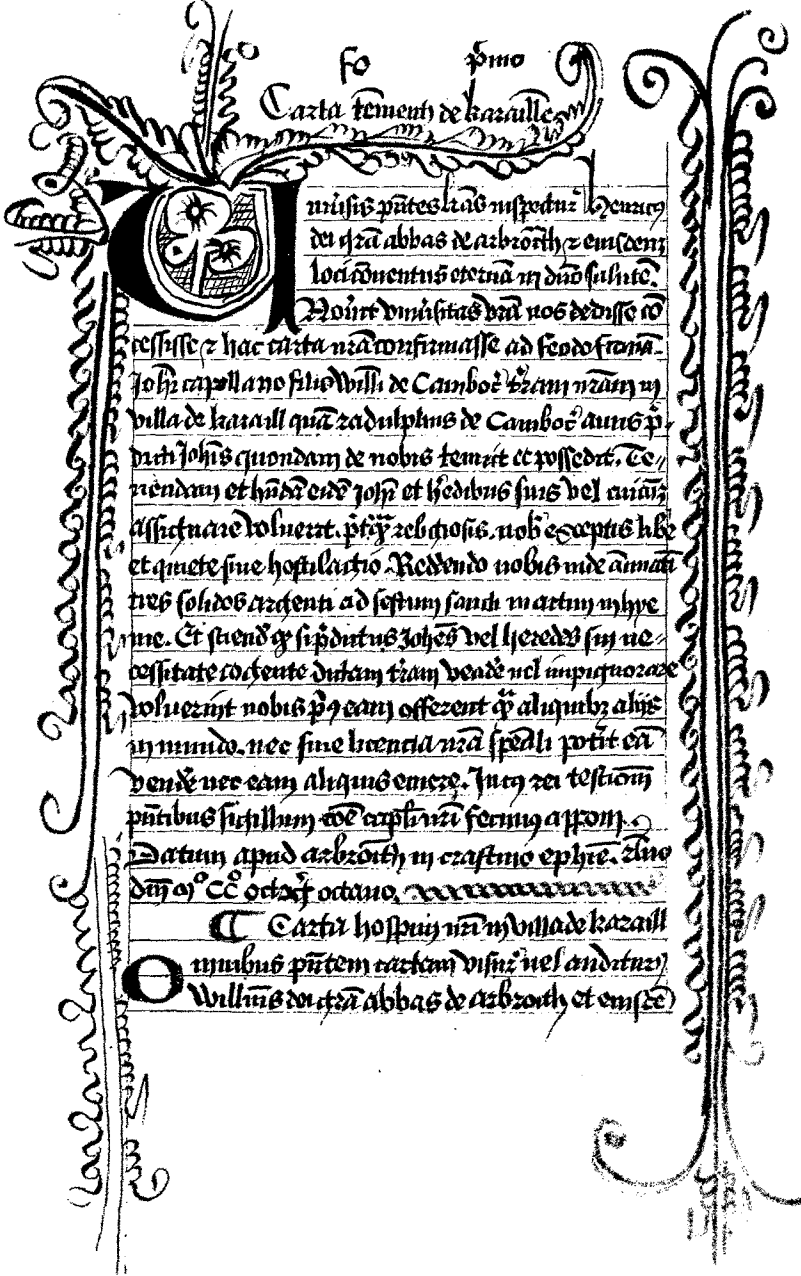 fo primo
Carta tementi de karaill
Uniũsis pñtes lras inspectur̃ Henricus
dei grã abbas de arbroth et eiusdem
loci cõventus eternã in dño salutẽ.
Nov̾it vniũsitas vrã nos dedisse cõ
cessisse et hac carta nrã confirmasse ad feodo firmã.
Joħi capellano filio Willi de Camboc̾ tr̃am nrãm in
villa de karaill quã radulphus de Camboc̾ auus p̃
dicti Joħis quondam de nobis tenuit et possedit. Te⸗
nendam et hñdã eidẽ Joħi et h̾edibus suis vel cuicũq
assignare voluerit. religiosis. nob̾ exceptis libe
et quiete sine hostilagio. Reddendo nobis inde ãnuati
tres solidos argenti ad festum sancti martini in hye
me. Et sciend̾ q si p̃dictus Joħes vel heredes sui ne⸗
cessitate cogente dictam tr̃am vende̾ vel inpignorare
voluerint nobis p̾us eam offerent q̃ aliquibz alijs
in mundo. nec sine licencia nrã sp̃eali pot̾it eã
vende̾ nec eam aliquis emere. In cuius rei testiom̃
pñtibus sigillum cõe capli nri fecimus apponi.
Datum apud arbroth in crastino ephie. Ãno
dñi mº ccº octog̃ octauo.
Carta hospicij nri in villa de karaill
Omnibus pñtem cartam visur̃ uel auditur̃
Willm̃s dei grã abbas de arbroth et eiusdẽ